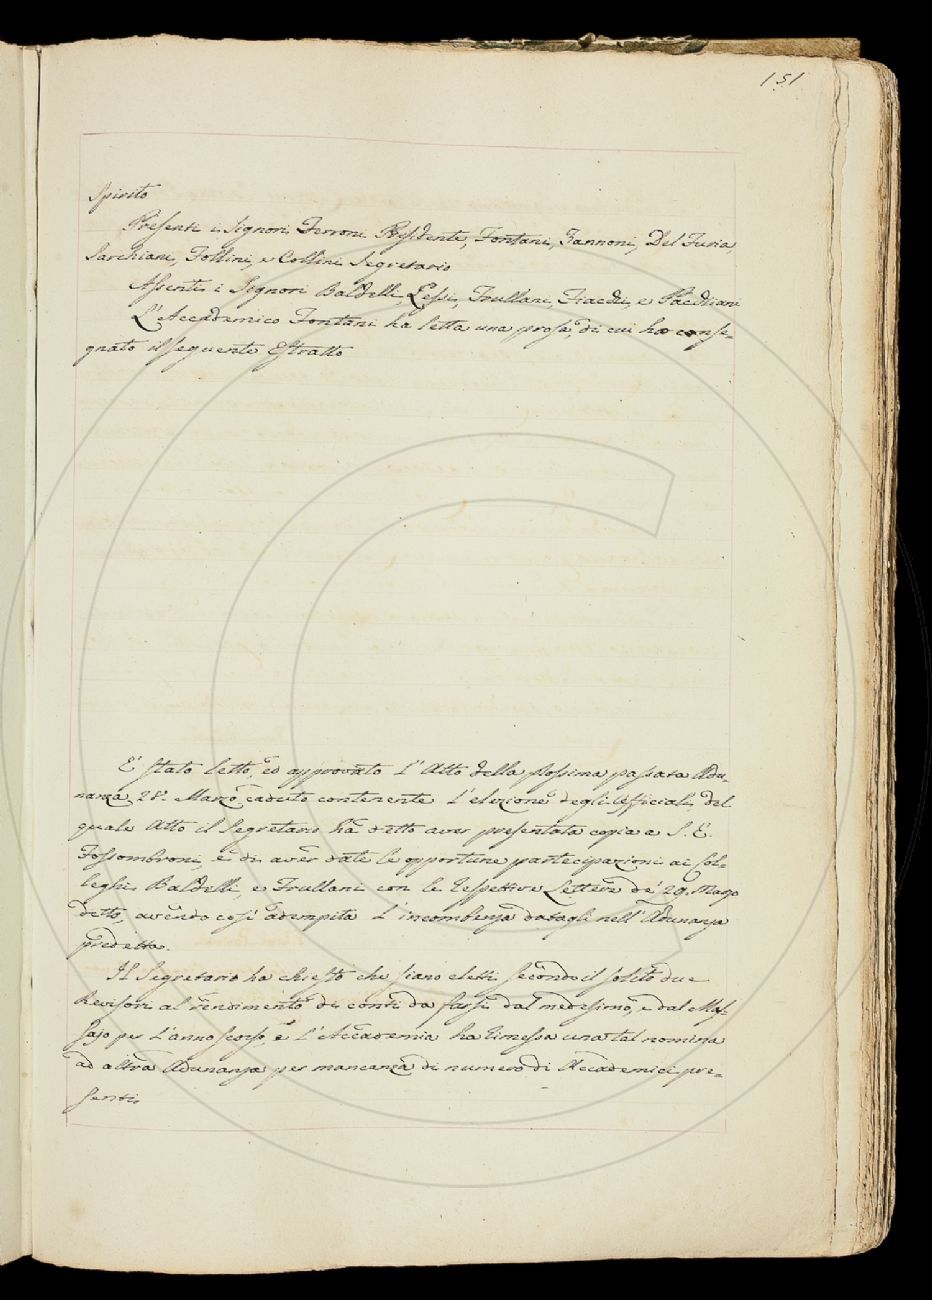 151
Spirito
Presenti i Signori Ferroni Presidente, Fontani, Zannoni, Del Furia,
Sarchiani, Follini, e Collini Segretario
Assenti i Signori Baldelli, Lessi, Frullani, Fiacchi, e
L'Accademico Fontani ha letta una prosa, di cui ha conse-
gnato il seguente Estratto
E' stato letto, ed approvato l'Atto della prossima passata Adu-
nanza 28. Marzo caduto contenente l'elezione degli Uffiziali, del
quale Atto il Segretario ha detto aver presentata copia a S. E.
Fossombroni, e di aver date le opportune partecipazioni ai Col-
leghi Baldelli, e Frullani con le respettive Lettere de' 29. Marzo
detto, avendo così adempita l'incombenza datagli nell'Adunanza
predetta.
Il Segretario ha chiesto che siano eletti secondo il solito due
Revisori al rendimento di conti da farsi dal medesimo, e dal Mas-
sajo per l'anno scorso, e l'Accademia ha rimessa una tal nomina
ad altra Adunanza per mancanza di numero di Accademici pre-
senti.